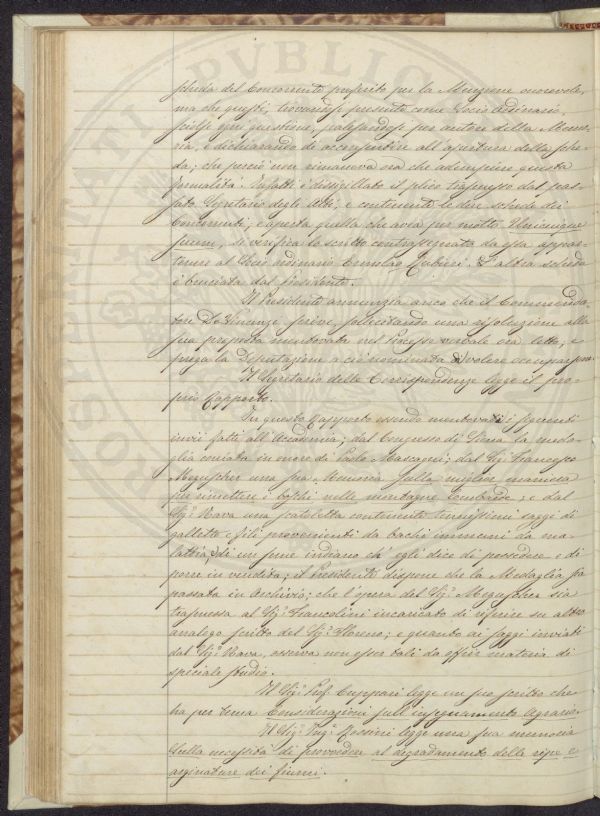 scheda del Concorrente preferito per la Menzione onorevole,
ma che questi, trovandosi presente come Socio Ordinario,
sciolse ogni questione, palesandosi per autore della Memo-
ria, e dichiarando di acconsentire all'apertura della sche-
da; che perciò non rimaneva ora che adempiere questa
formalità. Infatti è dissigillato il plico trasmesso dal pas-
sato Segretario degli Atti, e contenente le due schede dei
Concorrenti; e aperta quella che avea per motto Unicuique
suum, si verifica lo scritto contrassegnato da essa appar-
tenere al Socio ordinario Cubieri. L'altra scheda
è bruciata dal Presidente.
Il Presidente annunzia anco che il Commenda-
tore De Vincenzi scrive, sollecitando una risoluzione alla
sua proposta mentovata nel Processo verbale ora letto, e
prega la Deputazione a ciò nominata di volere occuparsene.
Il Segretario delle Corrispondenze legge il pro-
prio Rapporto.
In questo Rapporto essendo mentovati i seguenti
invii fatti all'Accademia; dal Congresso di Siena la meda-
glia coniata in onore di Paolo Mascagni; dal Sig.r Francesco
Meguscher una sua Memoria sulla migliore maniera
per rimettere i boschi nelle montagne lombarde; e dal
Sig.r Rava una scatoletta contenente tenuissimi saggi di
gallette e fili provenienti da bachi immuni da ma-
lattia, di un seme indiano ch'egli dice di possedere e di
porre in vendita; il Presidente dispone che la Medaglia sia
passata in Archivio; che l'opera del Sig.r Meguscher sia
trasmessa al Sig.r Francolini incaricato di riferire su altro
analogo scritto del Sig.r; e quanto ai saggi inviati
dal Sig.r Rava, osserva non esser tali da offrir materia di
speciale studio.
Il Sig.r Prof. Cuppari legge un suo scritto che
ha per tema Considerazioni sull'insegnamento Agrario.
Il Sig.r Ing.r Rossini legge una sua memoria
Sulla necessità di provvedere al degradamento delle ripe e
arginature dei fiumi.